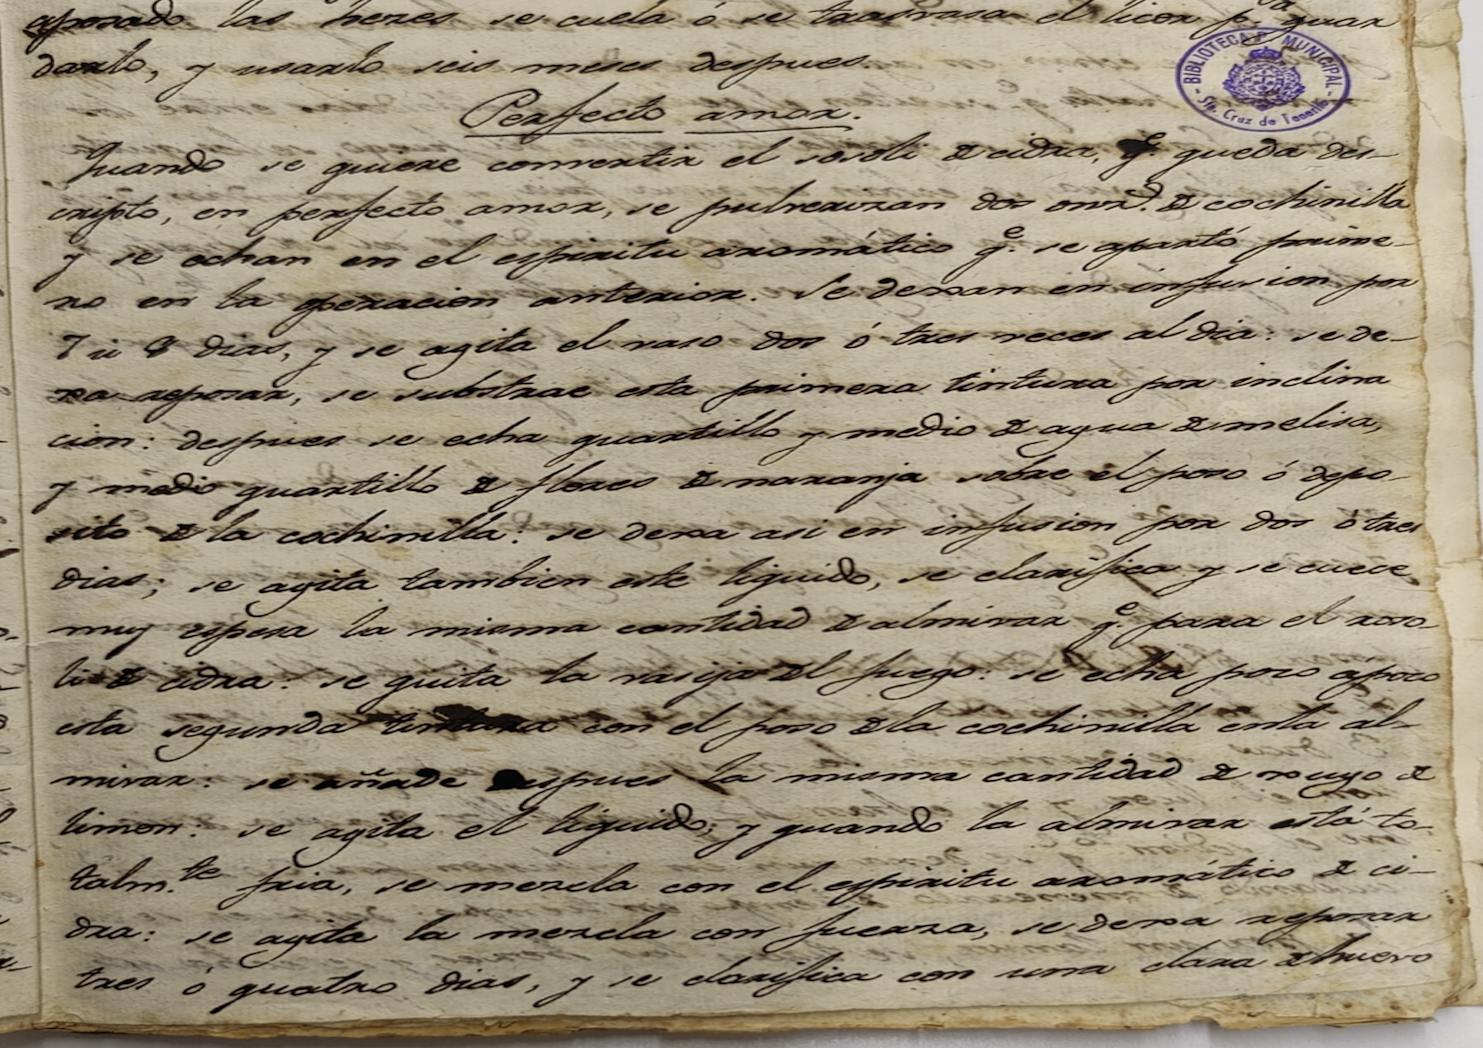 aposado las hezes se cuela ó se trasvasa el licor p.ª guar
darlo, y usarlo seis meses despues.
BIBLIOTECA MUNICIPAL
Sta. Cruz de Tenerife
Perfecto amor.
Quando se quiere convertir el rosoli de cidra, q.e queda des-
cripto, en perfecto amor, se pulverizan dos onz.s de cochinilla
y se echan en el espiritu aromático q.e se apartó prime-
ro en la operacion anterior. Se dexan en infusion por
7 ú 8 dias, y se agita el vaso dos ó tres veces al dia: se de-
xa reposar, se substrae esta primera tintura por inclina
cion: despues se echa quartillo y medio de agua de melisa,
y medio quartillo de flores de naranja sobre el poso ó depo-
sito de la cochinilla: se dexa asi en infusion por dos ó tres
dias; se agita tambien este liquido, se clarifica y se cuece
muy espesa la misma cantidad de almivar q.e para el roso-
li de cidra: se quita la vasija del fuego: se echa poco á poco
esta segunda tintura con el poso de la cochinilla enla al-
mivar: se añade despues la misma cantidad de zugo de
limon: se agita el liquido, y quando la almivar está to-
talm.te fria, se mezcla con el espiritu aromático de ci-
dra: se agita la mezcla con fuerza, se dexa reposar
tres ó quatro dias, y se clarifica con una clara de huevo